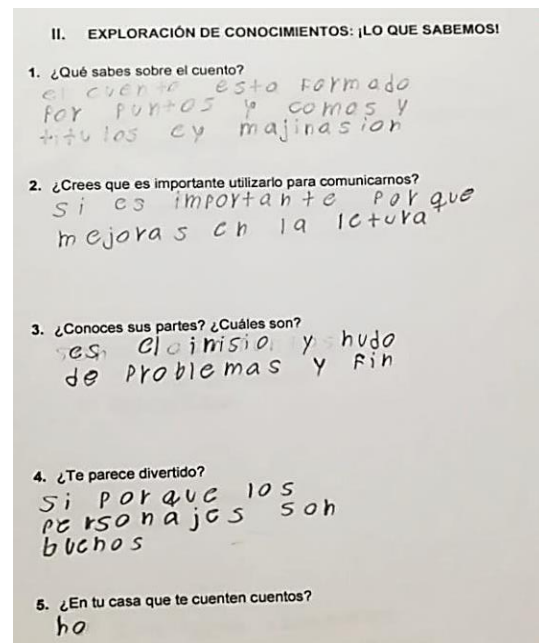 II. EXPLORACIÓN DE CONOCIMIENTOS: ¡LO QUE SABEMOS!
1. ¿Qué sabes sobre el cuento?
el cuento esta formado
por puntos y comas y
titulos ey majinasion
2. ¿Crees que es importante utilizarlo para comunicarnos?
si es importante porque
mejoras en la letura
3. ¿Conoces sus partes? ¿Cuáles son?
es el inisio y nudo
de problemas y fin
4. ¿Te parece divertido?
si porque los
personajes son
buenos
5. ¿En tu casa que te cuenten cuentos?
no